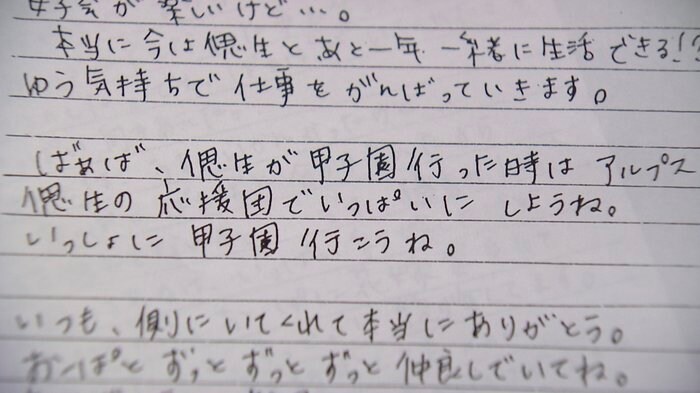 女子会が楽しいけど…。
本当に今は偲生とあと一年一緒に生活できる!?
ゆう気持ちで仕事をがんばっていきます。
ばぁば、偲生が甲子園行った時は アルプス
偲生の応援団でいっぱいにしようね。
いっしょに甲子園行こうね。
いつも、側にいてくれて本当にありがとう。
おっぱとずっとずっとずっと仲良しでいてね。